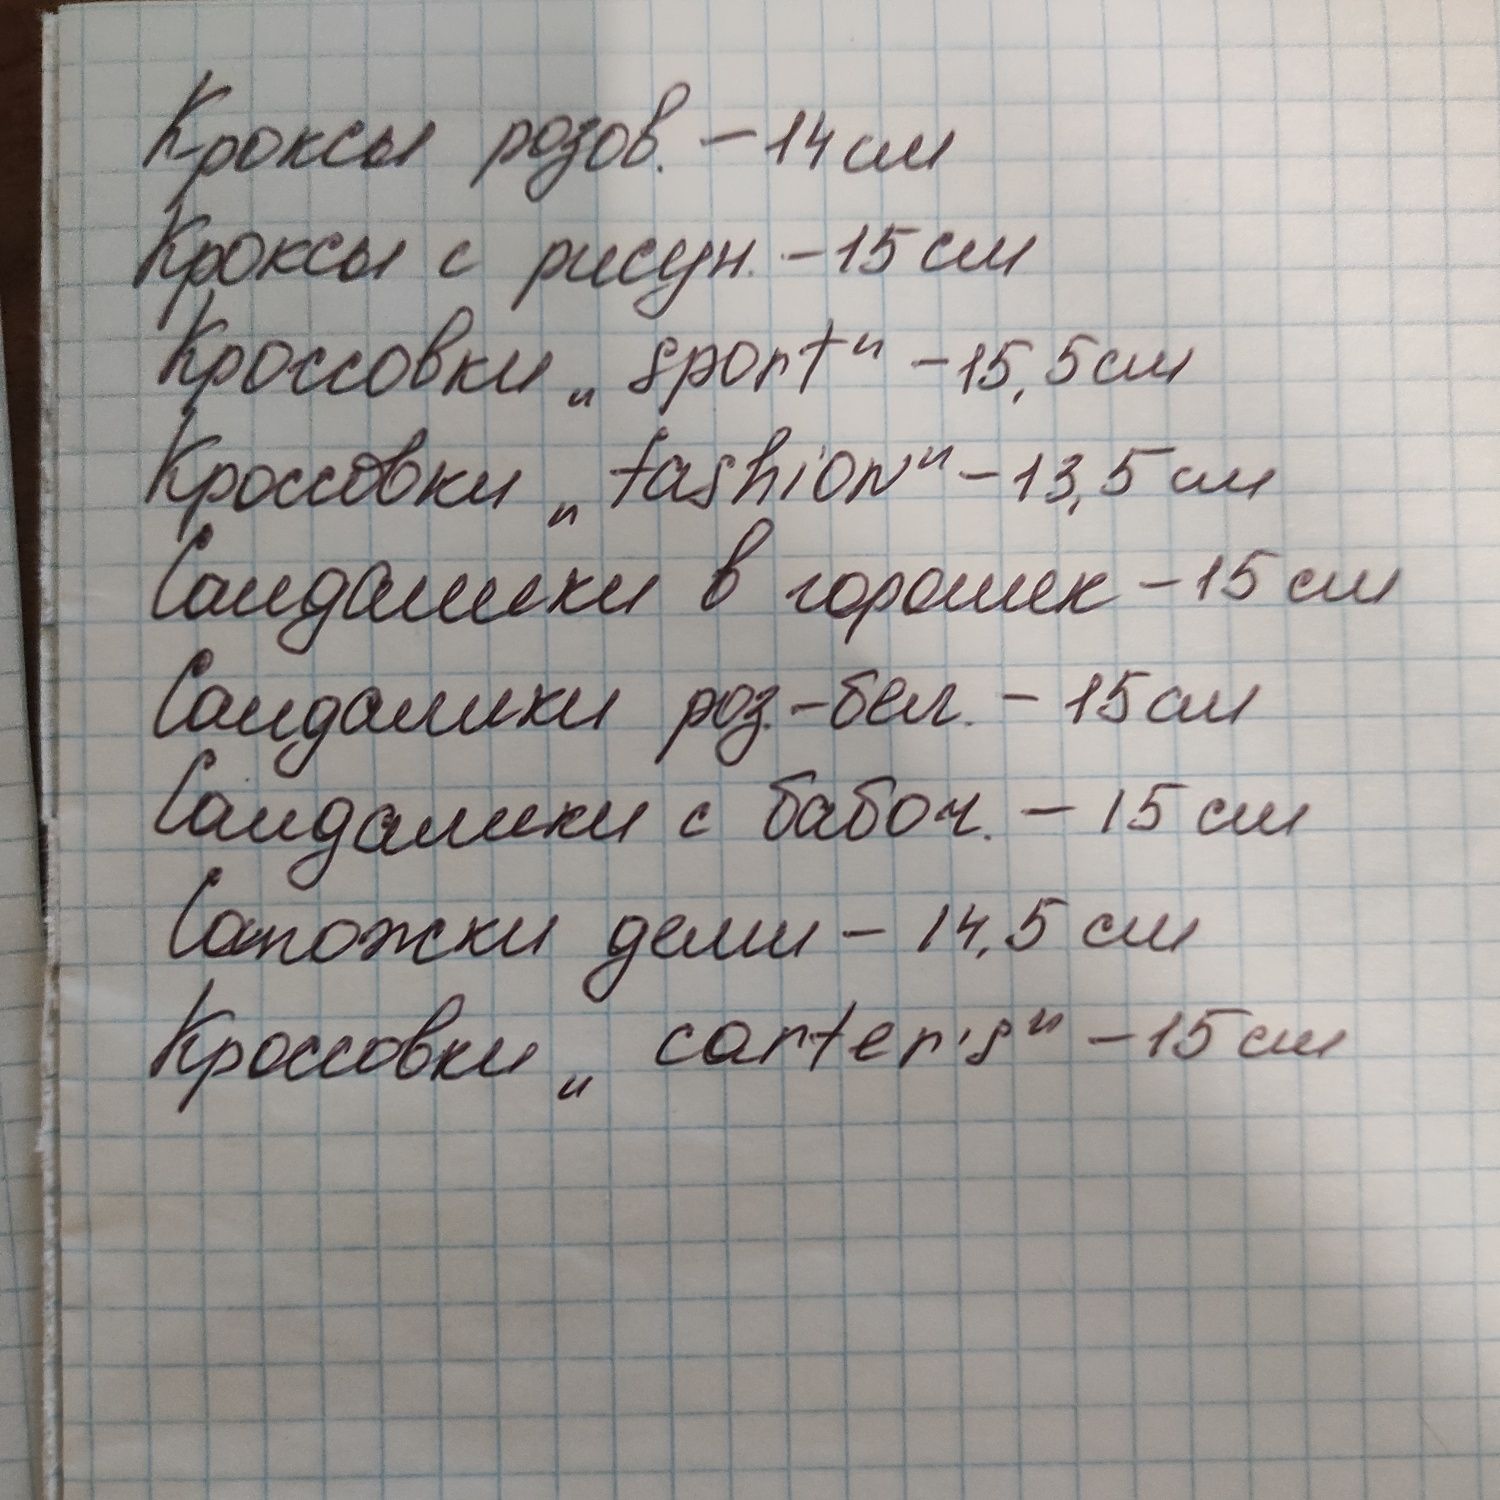 Кроксы розов. - 14 см
Кроксы с рисун. - 15 см
Кроссовки „sport“ - 15,5 см
Кроссовки „fashion“ - 13,5 см
Сандалики в горошек - 15 см
Сандалики роз.-бел. - 15 см
Сандалики с бабоч. - 15 см
Сапожки деми - 14,5 см
Кроссовки „carter's“ - 15 см